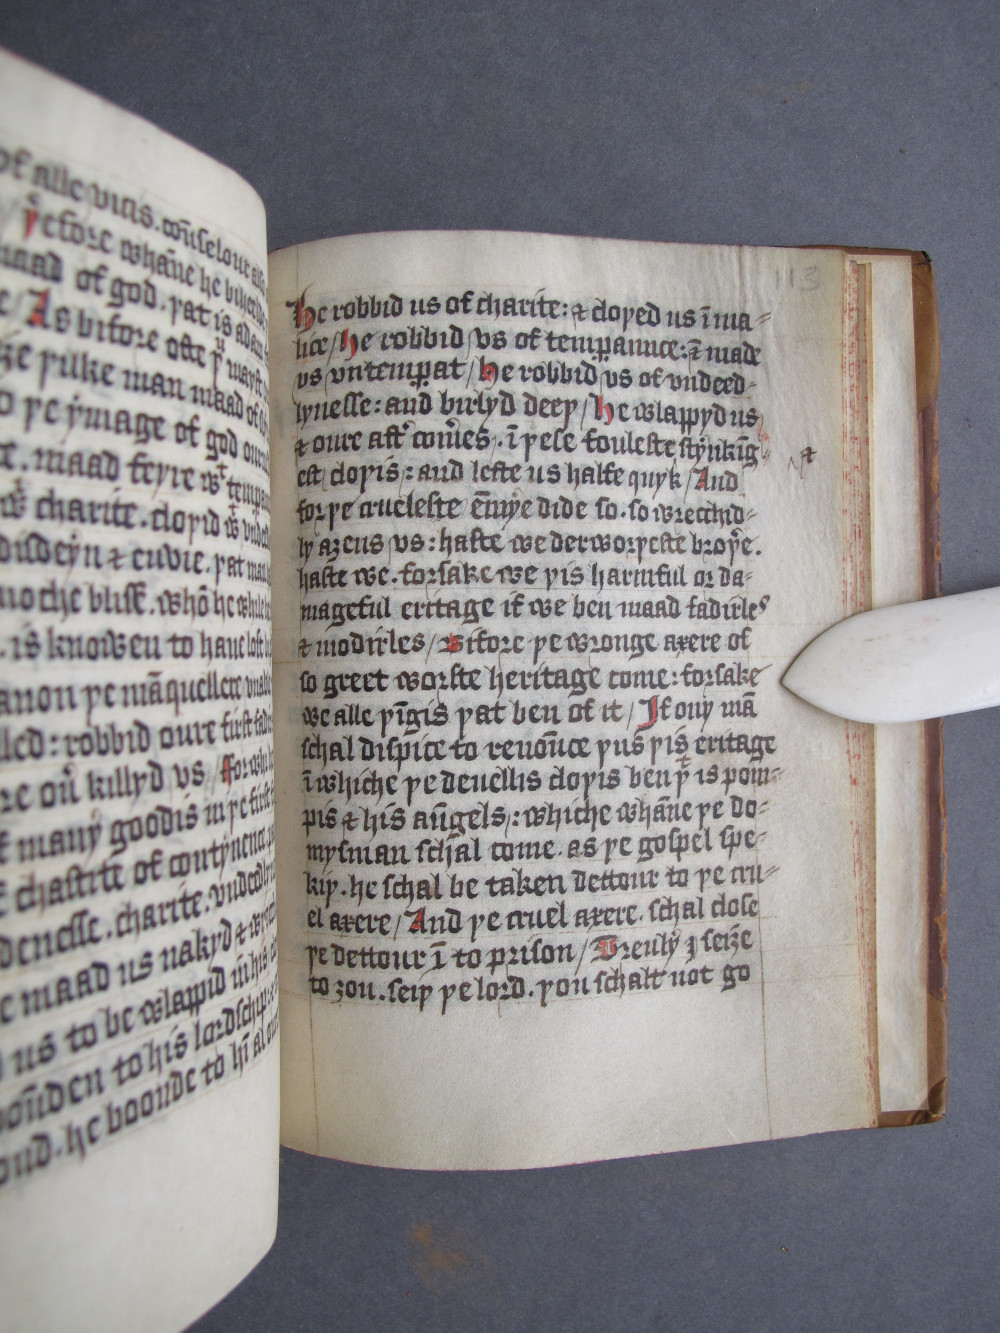 of alle vicis. coūselour
yͤfore whāne he
maad of god. þat is adam
As bifore ofte þͧ mayst
ȝe þilke man maad of
þe ymage of god
maad feyre wᵗ
wᵗ charite. cloþid wᵗ
disdeyn & envie. þat
moche blisse. whō he
is knowen to haue lost
anon þe māquellere
robbid oure first
killyd vs / For
many goodis in þe first
chastite of contynence
charite:
maad us nakyd &
us to be wlappid
bounden to his lordschip
he boonde to hī al
113
he robbid us of charite: & cloþed us ī ma⸗
lice / he robbid vs of temꝑaunce: & made
vs vntemꝑat / he robbid vs of vndeed⸗
lynesse: and biriyd deep / he wlappyd us
& oure aftᵉ comēs. ī þese fouleste stynkīg⸗
est cloþis: and lefte us halfe quyk / And
for þe crueleste ēmye dide so. so wrecchid⸗
ly aȝens vs: haste we derworþeste broþe.
haste we. forsake we þis harmful or da⸗
mageful eritage if we ben maad fadirles
& modirles / Bifore þe wronge axere of
so greet worste heritage come: forsake
we alle þīgis þat ben of it / If ony mā
schal dispice to renoūce þus þis eritage
ī whiche þe deuellis cloþis ben þᵗ is pom⸗
pis & his aūgels: whiche whāne þe do⸗
mysman schal come. as þe gospel spe⸗
kiþ. he schal be taken dettour to þe cru⸗
el axere / And þe cruel axere. schal close
þe dettour ī to prison / Treuly I seiȝe
to ȝou. seiþ þe lord. þou schalt not go